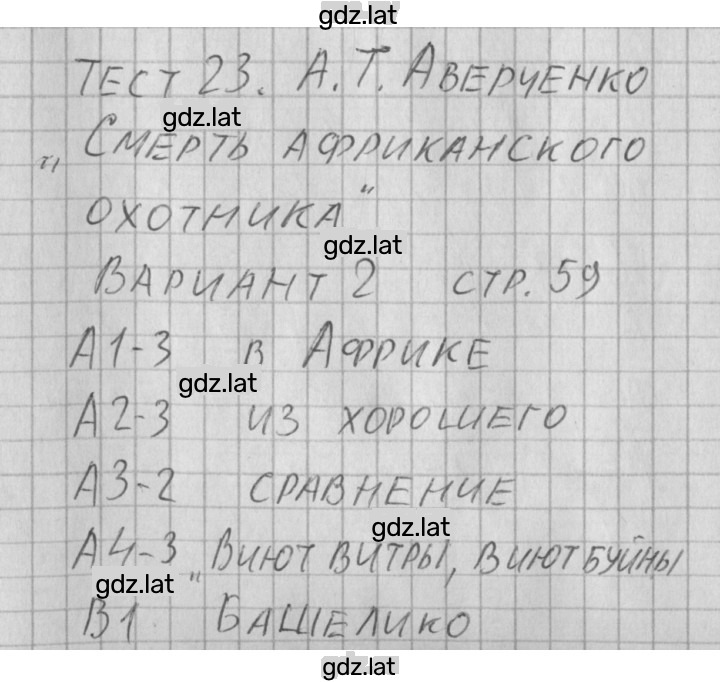 gdz.lat
Тест 23. А.Т. Аверченко
gdz.lat
„Смерть африканского
охотника“
gdz.lat
Вариант 2 стр. 59
А1-3 в Африке
gdz.lat
А2-3 из хорошего
А3-2 сравнение
gdz.lat
А4-3 „Виют витры, виют буйны
gdz.lat
В1 Башелико
gdz.lat